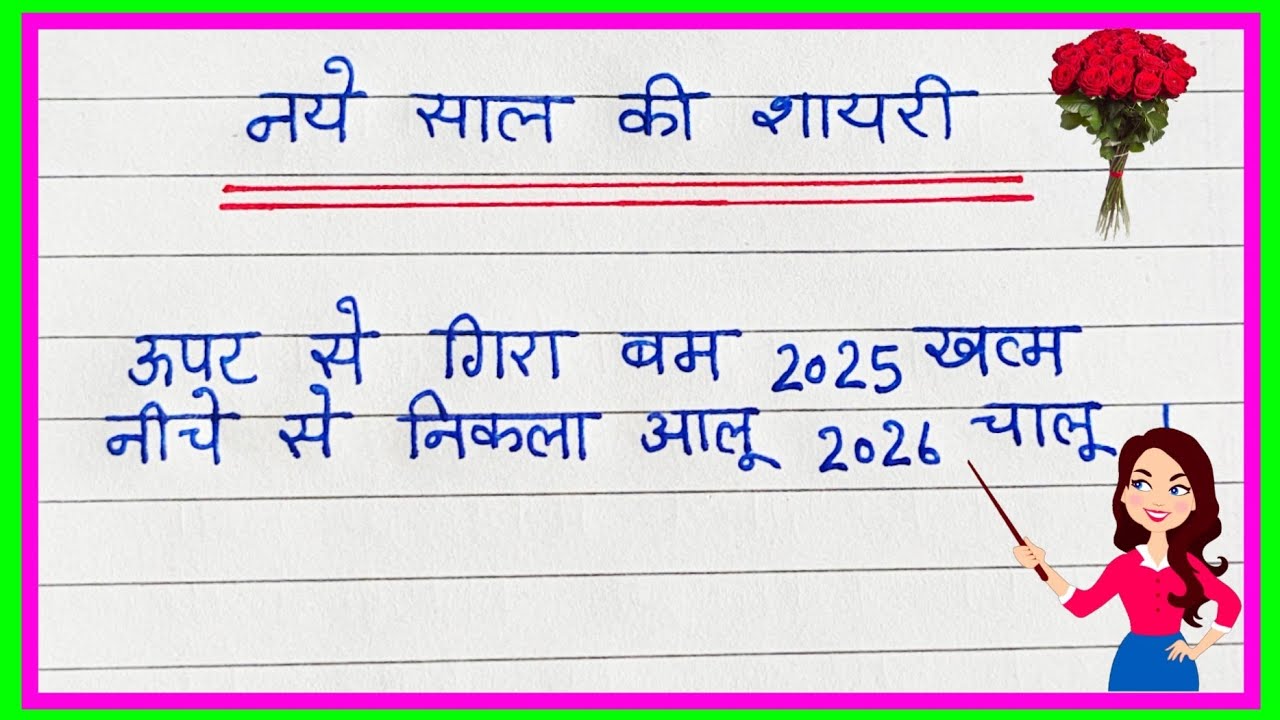 नये साल की शायरी
ऊपर से गिरा बम 2025 खत्म
नीचे से निकला आलू 2026 चालू ।